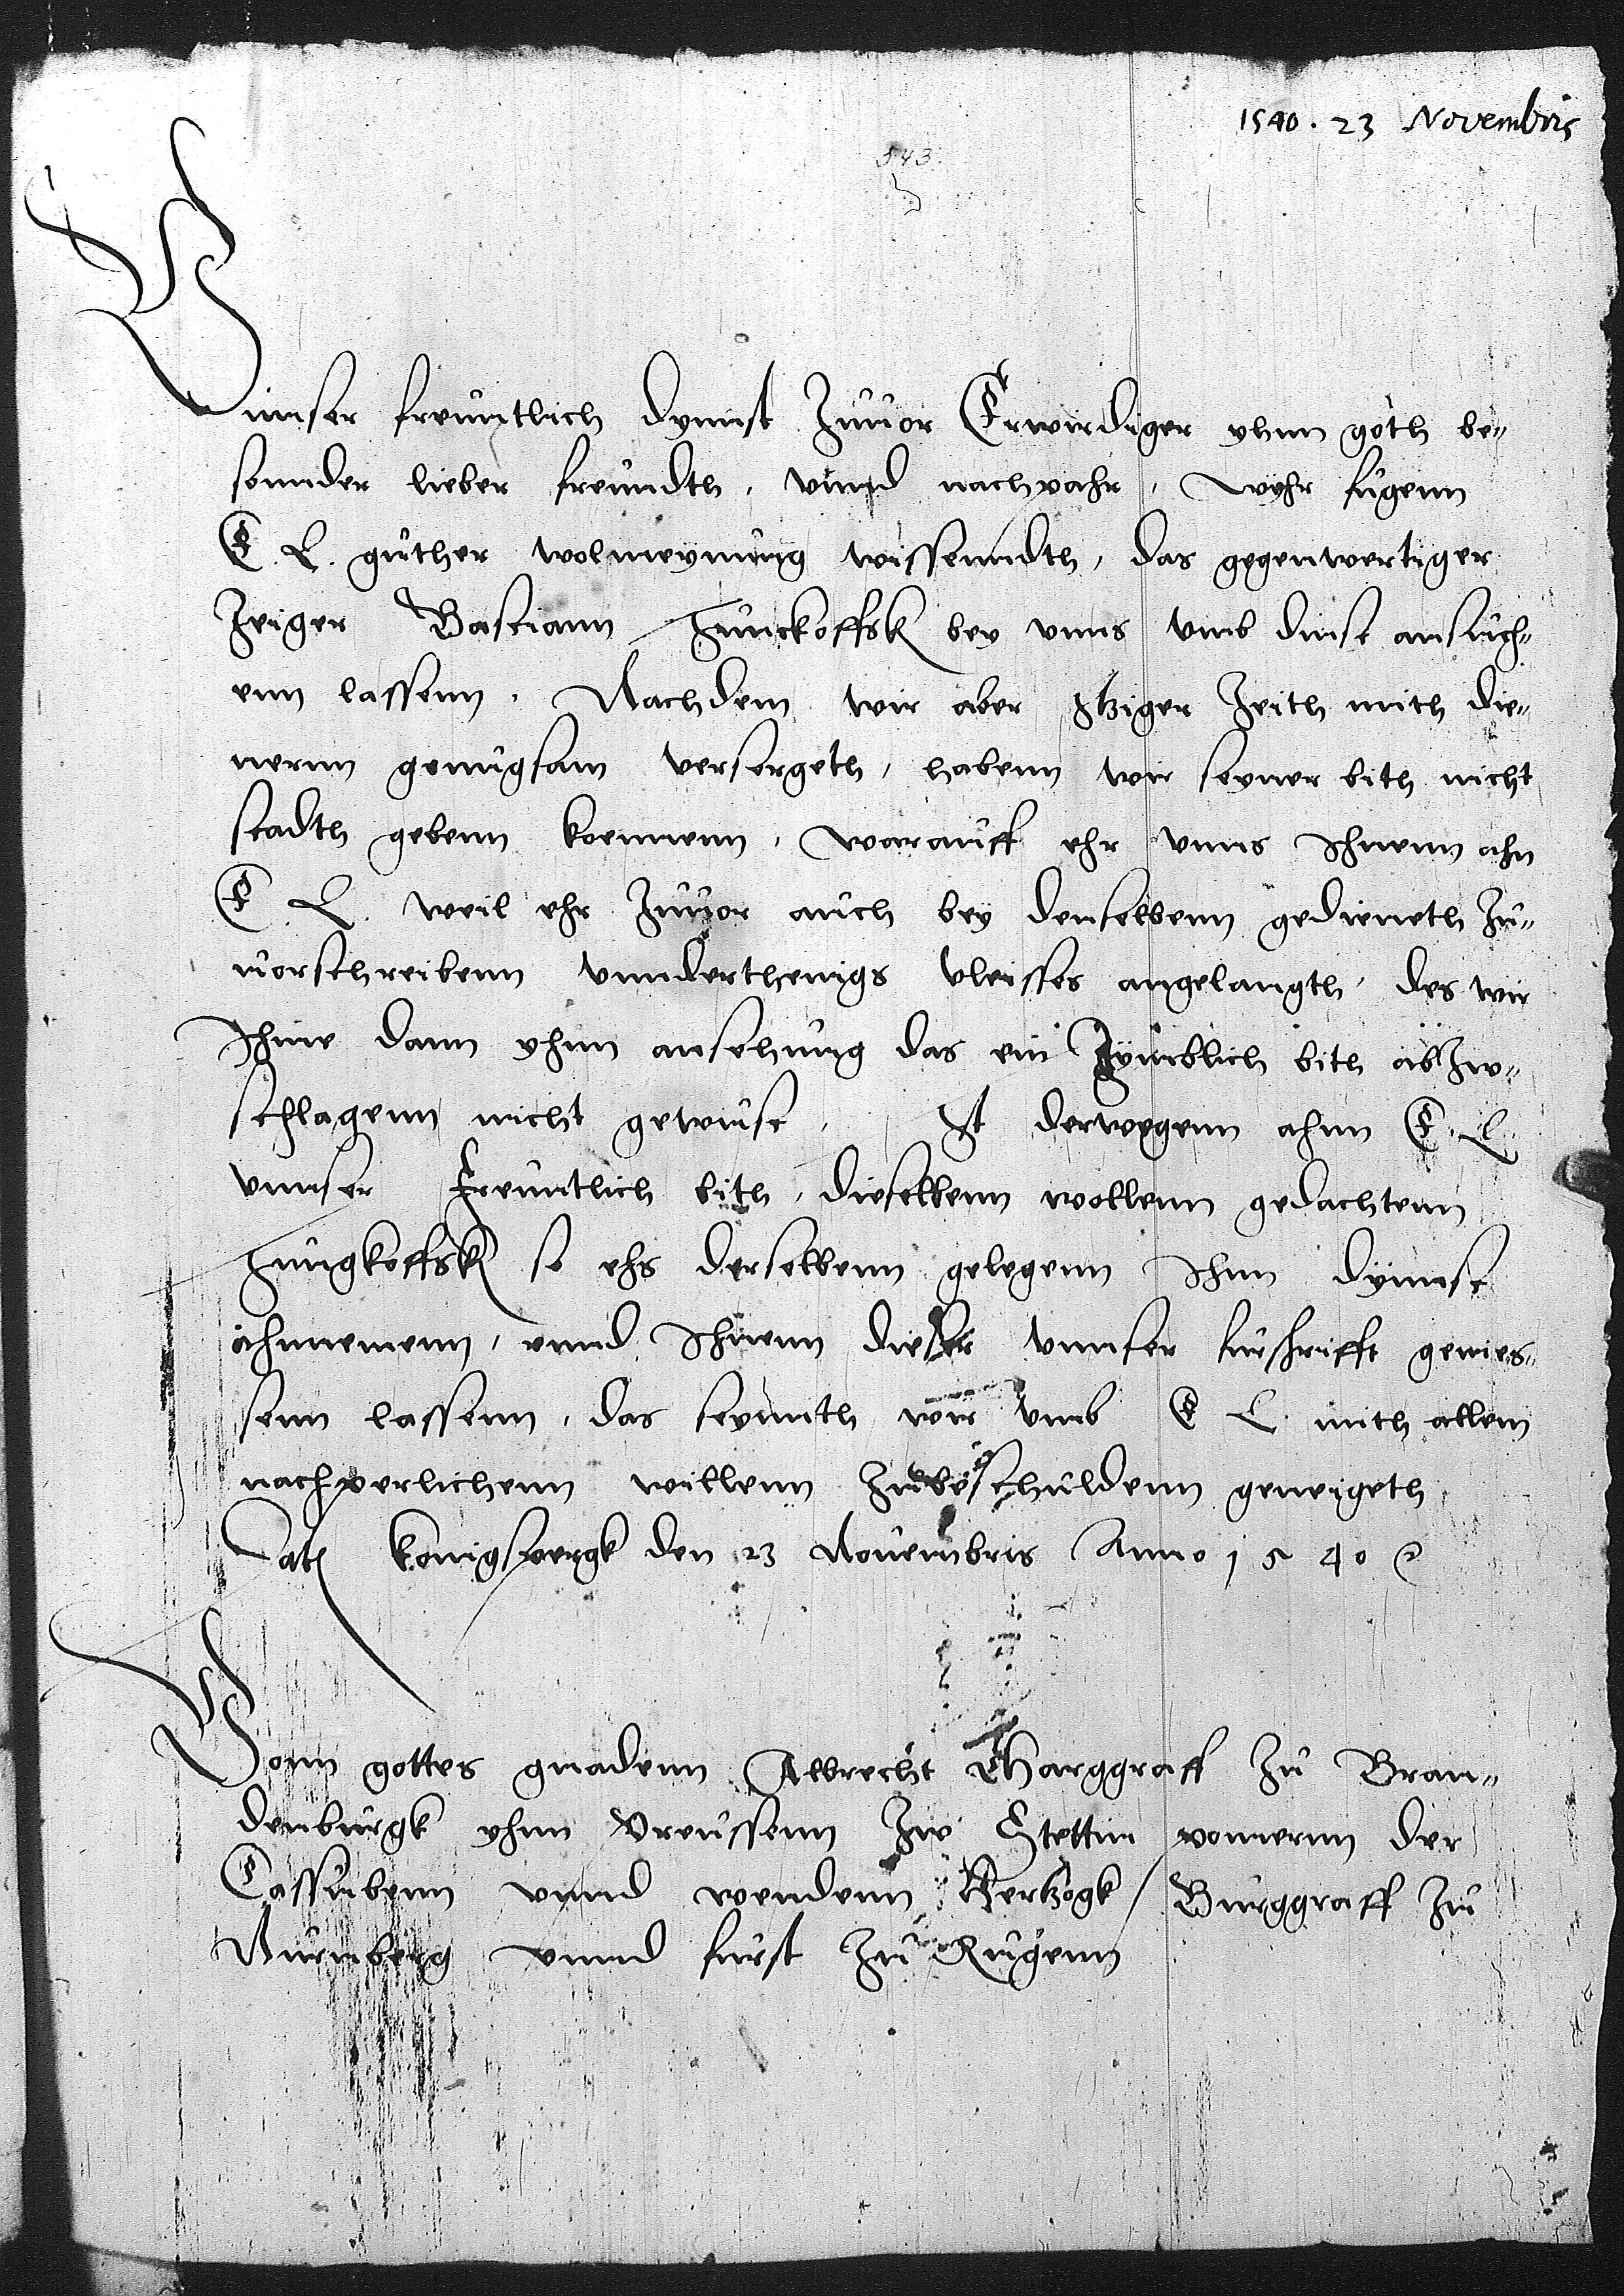 1540. 23 Novembris
543.
Vnnser freuntlich dynnst Zuuor Erwirdiger yhnn goth be„
sonnder lieber freundth, vnnd nachpahr, wyhr fugenn
E. L. guther wolmeynung wissenndth, das gegenwertiger
Zeiger Bastiann Junckoffsk bey vnns vmb dinst ansuch„
enn lassenn, Nachdem wir aber Itziger Zeith mith die„
nernn genugsam versorgeth, habenn wir seyner bith nicht
stadth gebenn koennenn, warauff ehr vnns Ihnenn ahn
E. L. weil ehr Zuuor auch bey denselbenn gedieneth Zu„
uorschreibenn vnnderthenigs vleisses angelangth, des wir
Ihme dann yhnn ansehung das ein Zymblich bith abZw„
schlagenn nicht gewust, Ist derwegenn ahnn E. L.
vnnser freuntlich bith, dieselbenn wollenn gedachtenn
Jungkoffsk so ehs derselbenn gelegenn Ihnn dynnst
ahnnemenn, vnnd Ihnenn dieser vnnser furschrifft genies„
senn lassenn, das seynnth wir vmb E L. mith allem
nachperlichenn willenn Zubeschuldenn geneigeth
Dath Konigspergk den 23 Nouembris Anno 1540
Vonn gottes gnadenn Albrecht Marggraff Zu Bran„
denburgk yhnn Preussenn Zw Stettin pomernn der
Cassubenn vnnd wendenn Hertzogk / Burggraff Zu
Nurmberg vnnd furst Zu Rugenn